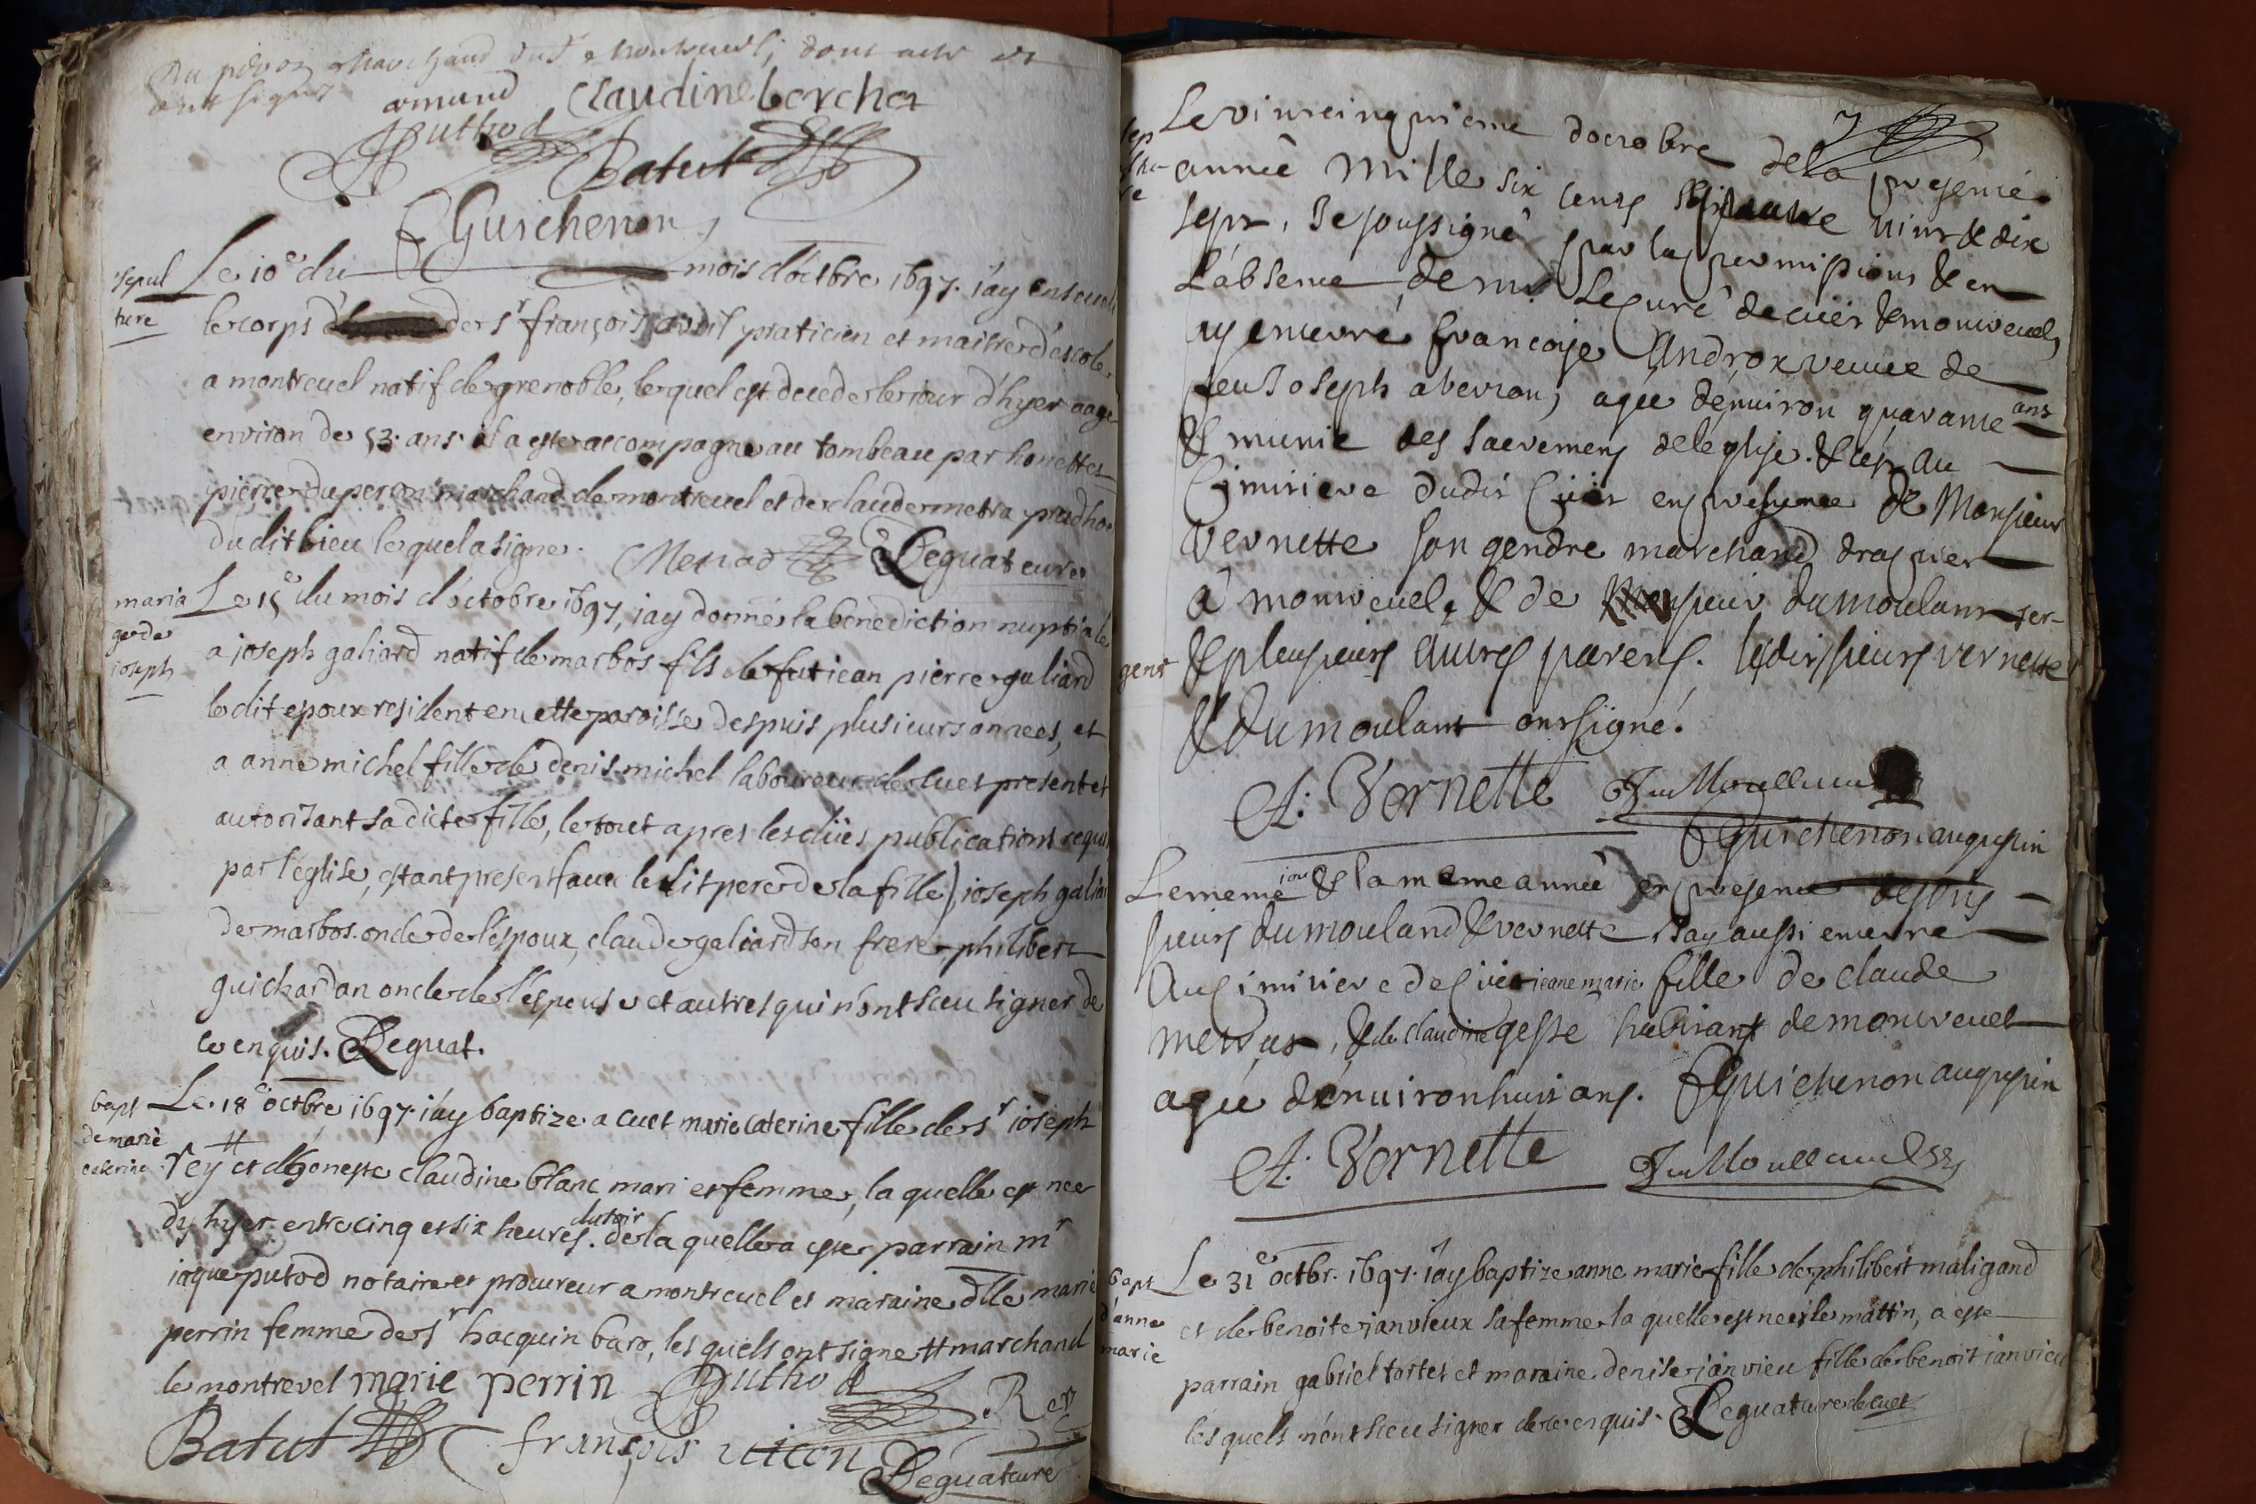 Du peron marchand dud montrevel, dont acte et
ont signez armand Claudine berchet
Puthod
Batut
Guichenon
sepul
ture
Le 10e du mois d'octbre 1697. i'ay enseveli
le corps de sr françois praticien et maitre d'escole
a montrevel natif de grenoble, le quel est decede le iour d'hyer aage
environ de 53. ans. il a este accompagne au tombeau par honettes
pierre duperon marchand de montrevel et de claude metra prudho
du dit lieu le quel a signe. Metrad Deguat cure
maria
ge de
ioseph
Le 15e du mois d'octobre 1697, iay donné la benediction nuptiale
a joseph galiard natif de marbos fils de fut iean pierre galiard
le dit epoux resident en cette paroisse despuis plusieurs annees, et
a anne michel fille de denis michel laboureur de cuet present et
autorisant sa dicte fille, le tout apres les dües publications requis
par l'eglise, estant present (avec le dit pere de la fille) ioseph galiar
de marbos oncle de l'espoux, claude galiard son frere, philibert
guichardan oncle de l'espouse et autres qui n'ont sceu signer de
ce enquis. Deguat.
bapt
de marie
caterine
Le 18e octbre 1697. i'ay baptize a cuet marie caterine fille de sr ioseph
rey # et d'honeste claudine blanc mari et femme, la quelle est nee
dy hyer entre cinq et six heures du soir. de la quelle a este parrain mr
iaque putod notaire et procureur a montrevel et maraine dlle marie
perrin femme de sr hacquin baro, les quels ont signe # marchand
de montrevel marie perrin Puthod
Rey
Batut françois
Deguat cure
7
sep
ultu
re
Le vintcinquieme d'octobre de la presente
année mille six cens nint & dix
sept, Je soussigné par la permission & en
l'absence de mr Le curé de cuet & montrevel,
ay enterré francoise Androx veuve de
feu Joseph abevron, agée d'environ quarante ans
& munie des sacremens de leglise. & cest au
Cimitiere dudit Cüet en presence de Monsieur
Vernette son gendre marchand drapier
à montrevel, & de Monsieur dumoulant ser-
gent & plusieurs autres parens. lesdits sieurs vernette
& dumoulant ont signé.
A: Vernette DuMoullan
F Guichenon augustin
Le meme iour & la meme année en presence desdits
sieurs dumouland & vernette, Jay aussi enterré
Au Cimitiere de Cüet ieane marie fille de claude
& de claudine gesse habitant de montrevel
agée d'environ huit ans. F Guichenon augustin
A: Vernette DuMoulland
bapt
d'anne
marie
Le 31e octbr. 1697. i'ay baptize anne marie fille de philibert maligand
et de benoite janvieux sa femme la quelle est nee le mattin, a este
parrain gabriel tortet et maraine denise janvieu fille de benoit ianvieu
les quels n'ont sceu signer de ce enquis. Deguat cure de cuet